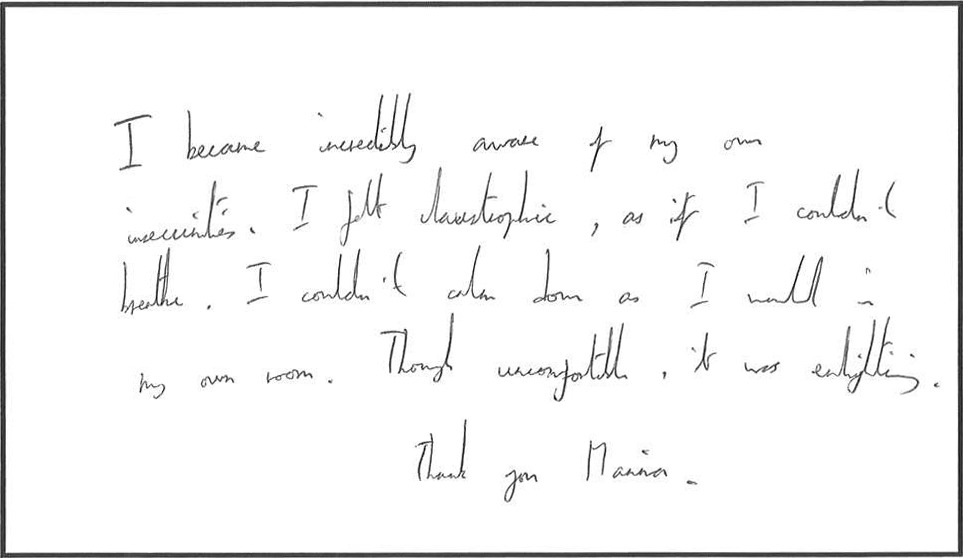 I became incredibly aware of my own
insecurities. I felt claustrophic, as if I couldn't
breathe. I couldn't calm down as I would in
my own room. Though uncomfortable, it was enlighting.
Thank you Marina.